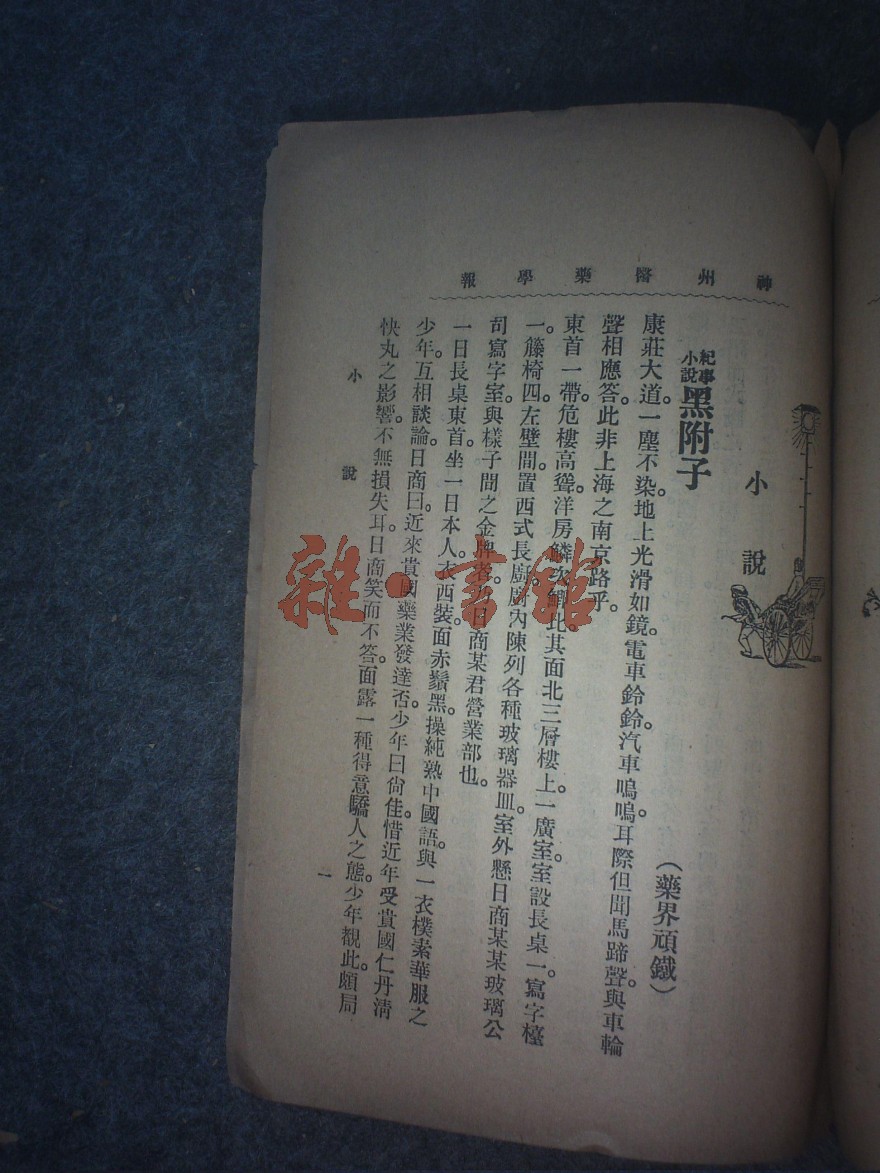 神州醫藥學報
小說
紀事小說
黑附子
（藥界頑鐵）
康莊大道。一塵不染。地上光滑如鏡。電車鈴鈴。汽車嗚嗚。耳際但聞馬蹄聲。與車輪
聲相應答。此非上海之南京路乎。
東首一帶。危樓高聳。洋房鱗次櫛比。其面北三層樓上。一廣室。室設長桌一。寫字檯
一。籐椅四。左壁間置西式長廚。廚內陳列各種玻璃器皿。室外懸日商某某玻璃公
司寫字室與樣子間之金牌者。即日商某君營業部也。
一日長桌東首。坐一日本人。衣西裝。面赤鬚黑。操純熟中國語。與一衣樸素華服之
少年。互相談論。日商曰。近來貴國藥業發達否。少年曰尙佳。惜近年受貴國仁丹淸
快丸之影響。不無損失耳。日商笑而不答。面露一種得意驕人之態。少年覩此。頗局
小說
一
雜·書館